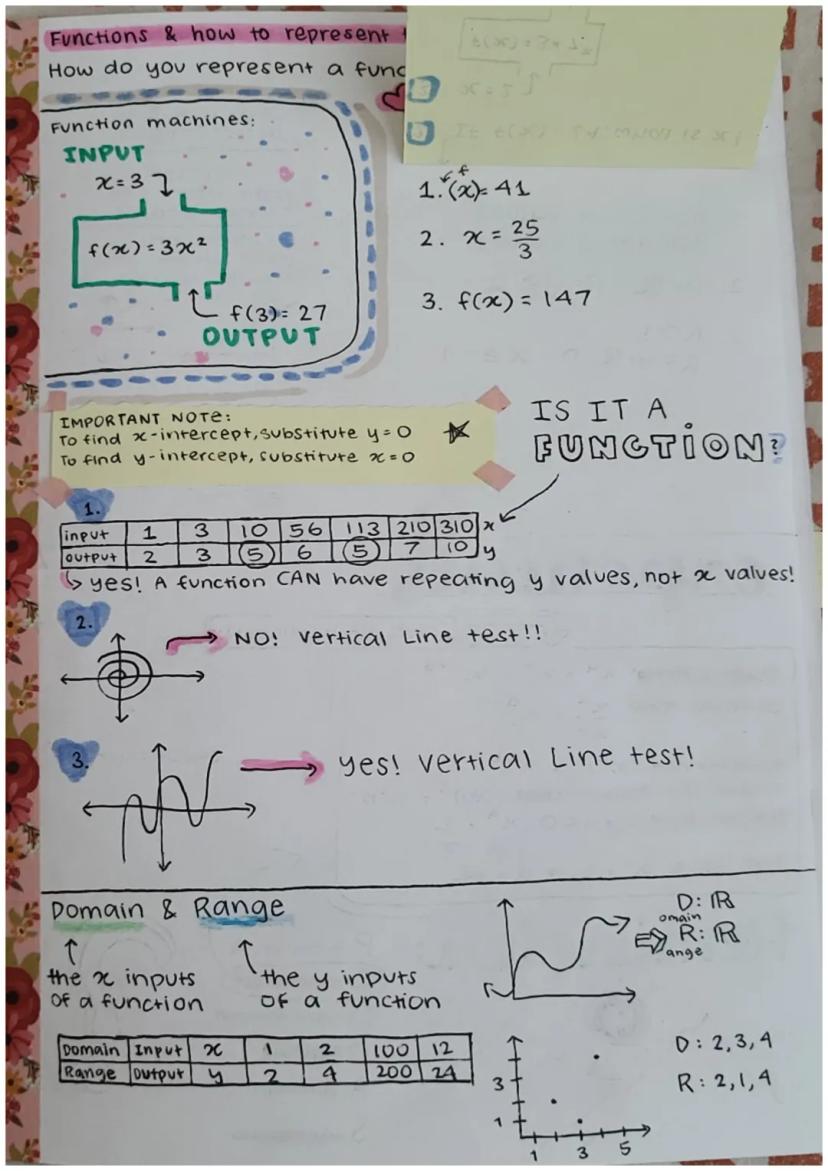 Functions & how to represent
How do you represent a func
Function machines:
INPUT
x=3
f(x)=3x²
f(3)=27
OUTPUT
1. f(x)=41
2. x=25/3
3. f(x)=147
IMPORTANT NOTE:
To find x-intercept, substitute y=0
To find y-intercept, substitute x=0
IS IT A
FUNCTION?
1.
input 1 3 10 56 113 210 310 x
output 2 3 5 6 5 7 10 y
yes! A function CAN have repeating y values, not x values!
2.
NO! Vertical Line test!!
3.
yes! Vertical Line test!
Domain & Range
the x inputs
of a function
the y inputs
of a function
D: ℝ
omain
R: ℝ
ange
Domain Input x 1 2 100 12
Range Output y 2 4 200 24
3
1
1 3 5
D: 2,3,4
R: 2,1,4